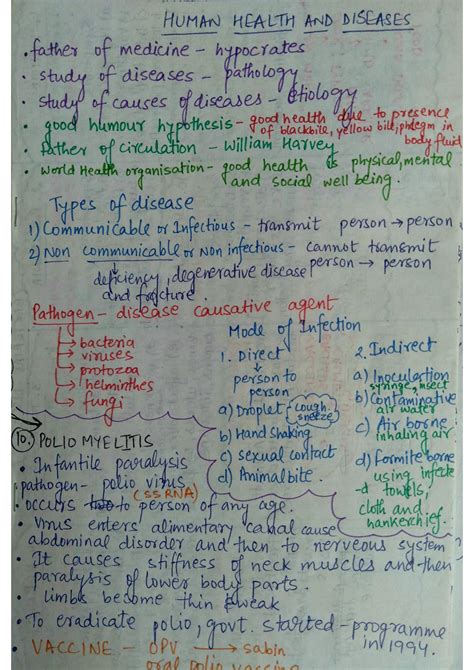 HUMAN HEALTH AND DISEASES
• father of medicine – hypocrates
• study of diseases – pathology
• study of causes of diseases – Etiology
• good humour hypothesis – good health due to presence
of blackbile, yellow bill, phlegm in
body fluid
• father of circulation – William Harvey
• World Health organisation – good health is physical, mental
and social well being.
Types of disease
1) Communicable or Infectious – transmit person → person
2) Non communicable or Non infectious – cannot transmit
person → person
deficiency, degenerative disease
and fracture.
Pathogen – disease causative agent
→ bacteria
→ viruses
→ protozoa
→ helminthes
→ fungi
Mode of Infection
1. Direct
↓
person to
person
a) Droplet – cough
sneeze
b) Hand Shaking
c) sexual contact
d) Animal bite.
2. Indirect
a) Inoculation
syringe, insect
b) Contaminative
air water
c) Air borne
inhaling air
d) Formite borne
using infecte
-d towels,
cloth and
hankerchief.
10. POLIO MYELITIS
• Infantile paralysis
• pathogen – polio virus
(SSRNA)
• occurs to person of any age.
• Virus enters alimentary canal cause
abdominal disorder and then to nervous system
• It causes stiffness of neck muscles and then
paralysis of lower body parts.
• limbs become thin & weak
• To eradicate polio, govt. started – programme
in 1994.
• VACCINE – OPV → sabin
oral polio vaccine